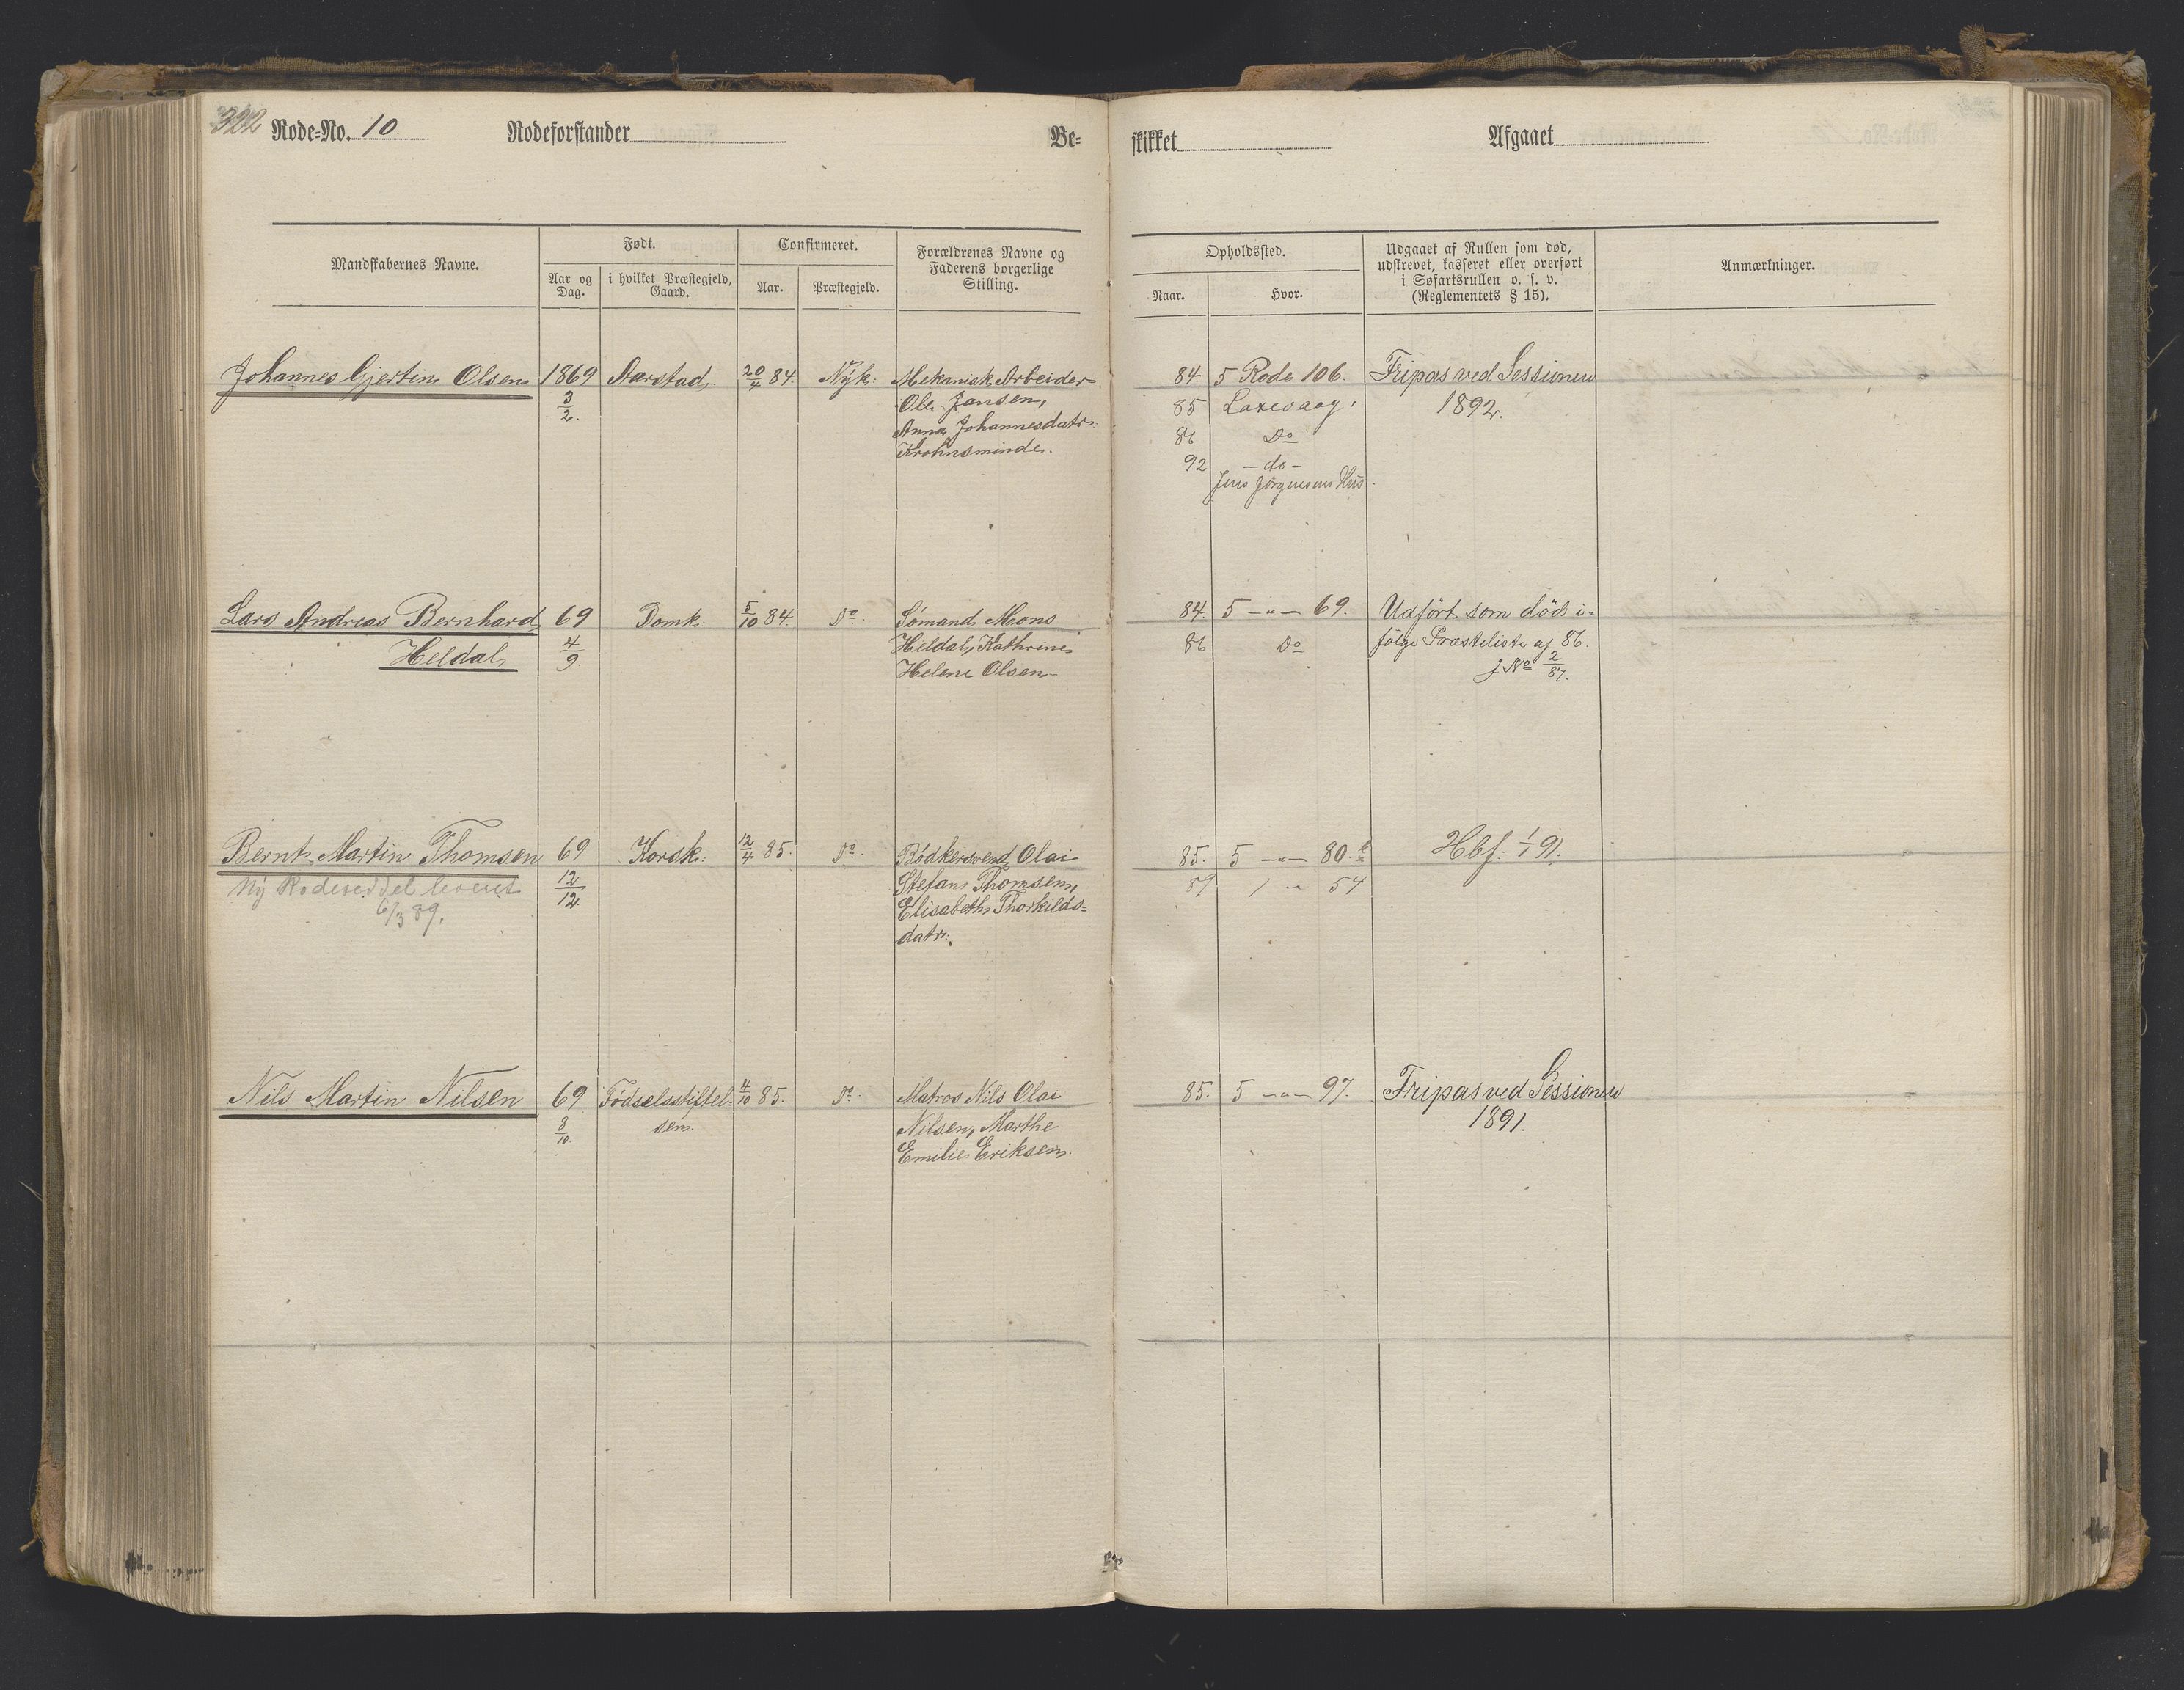 322 Rode-No. 10. Rodeforstander Be-
skikket Afgaaet
Mandskabernes Navne.
Født.
Aar og Dag.
i hvilket Præstegjeld, Gaard.
Confirmeret.
Aar.
Præstegjeld.
Forældrenes Navne og
Faderens borgerlige
Stilling.
Opholdssted.
Naar.
Hvor.
Udgaaet af Rullen som død,
udskrevet, kasseret eller overført
i Søfartsrullen o. s. v.
(Reglementets § 15).
Anmærkninger.
Johannes Gjertin Olsen 1869 Aarstad. 20/4 84. Nyk: Mekanisk Arbeider
3/2. Ole Jansen,
Anna Johannesdatr:
Krohnsminde.
84. 5 Rode 106. Fripas ved Sessionen
85 Laxevaag. 1892.
86 Do
92 - do -
Jens Jörgensens Hus.
Lars Andreas Bernhard 69 Domk: 5/10 84. Do. Sömand Mons
Heldal 4/9. Heldal, Kathrine
Helene Olsen
84. 5 -"- 69. Udfört som död i-
86 Do fölge Præsteliste af 86.
J No 2/87.
Bernt Martin Thomsen 69 Korsk: 12/4 85. Do. Bödkersvend Olai
Ny Rodeseddel leveret 12/12. Stefan Thomsen,
6/3 89. Elisabeth Thorkilds-
datr:
85. 5 -"- 80. Hbf: 1/1 91.
89 1 " 54
Nils Martin Nilsen 69 Födselsstiftel- 4/10 85. Do. Matros Nils Olai
8/10. sen. Nilsen, Marthe
Emilie Eriksen.
85. 5 -"- 97. Fripas ved Sessionen
1891.